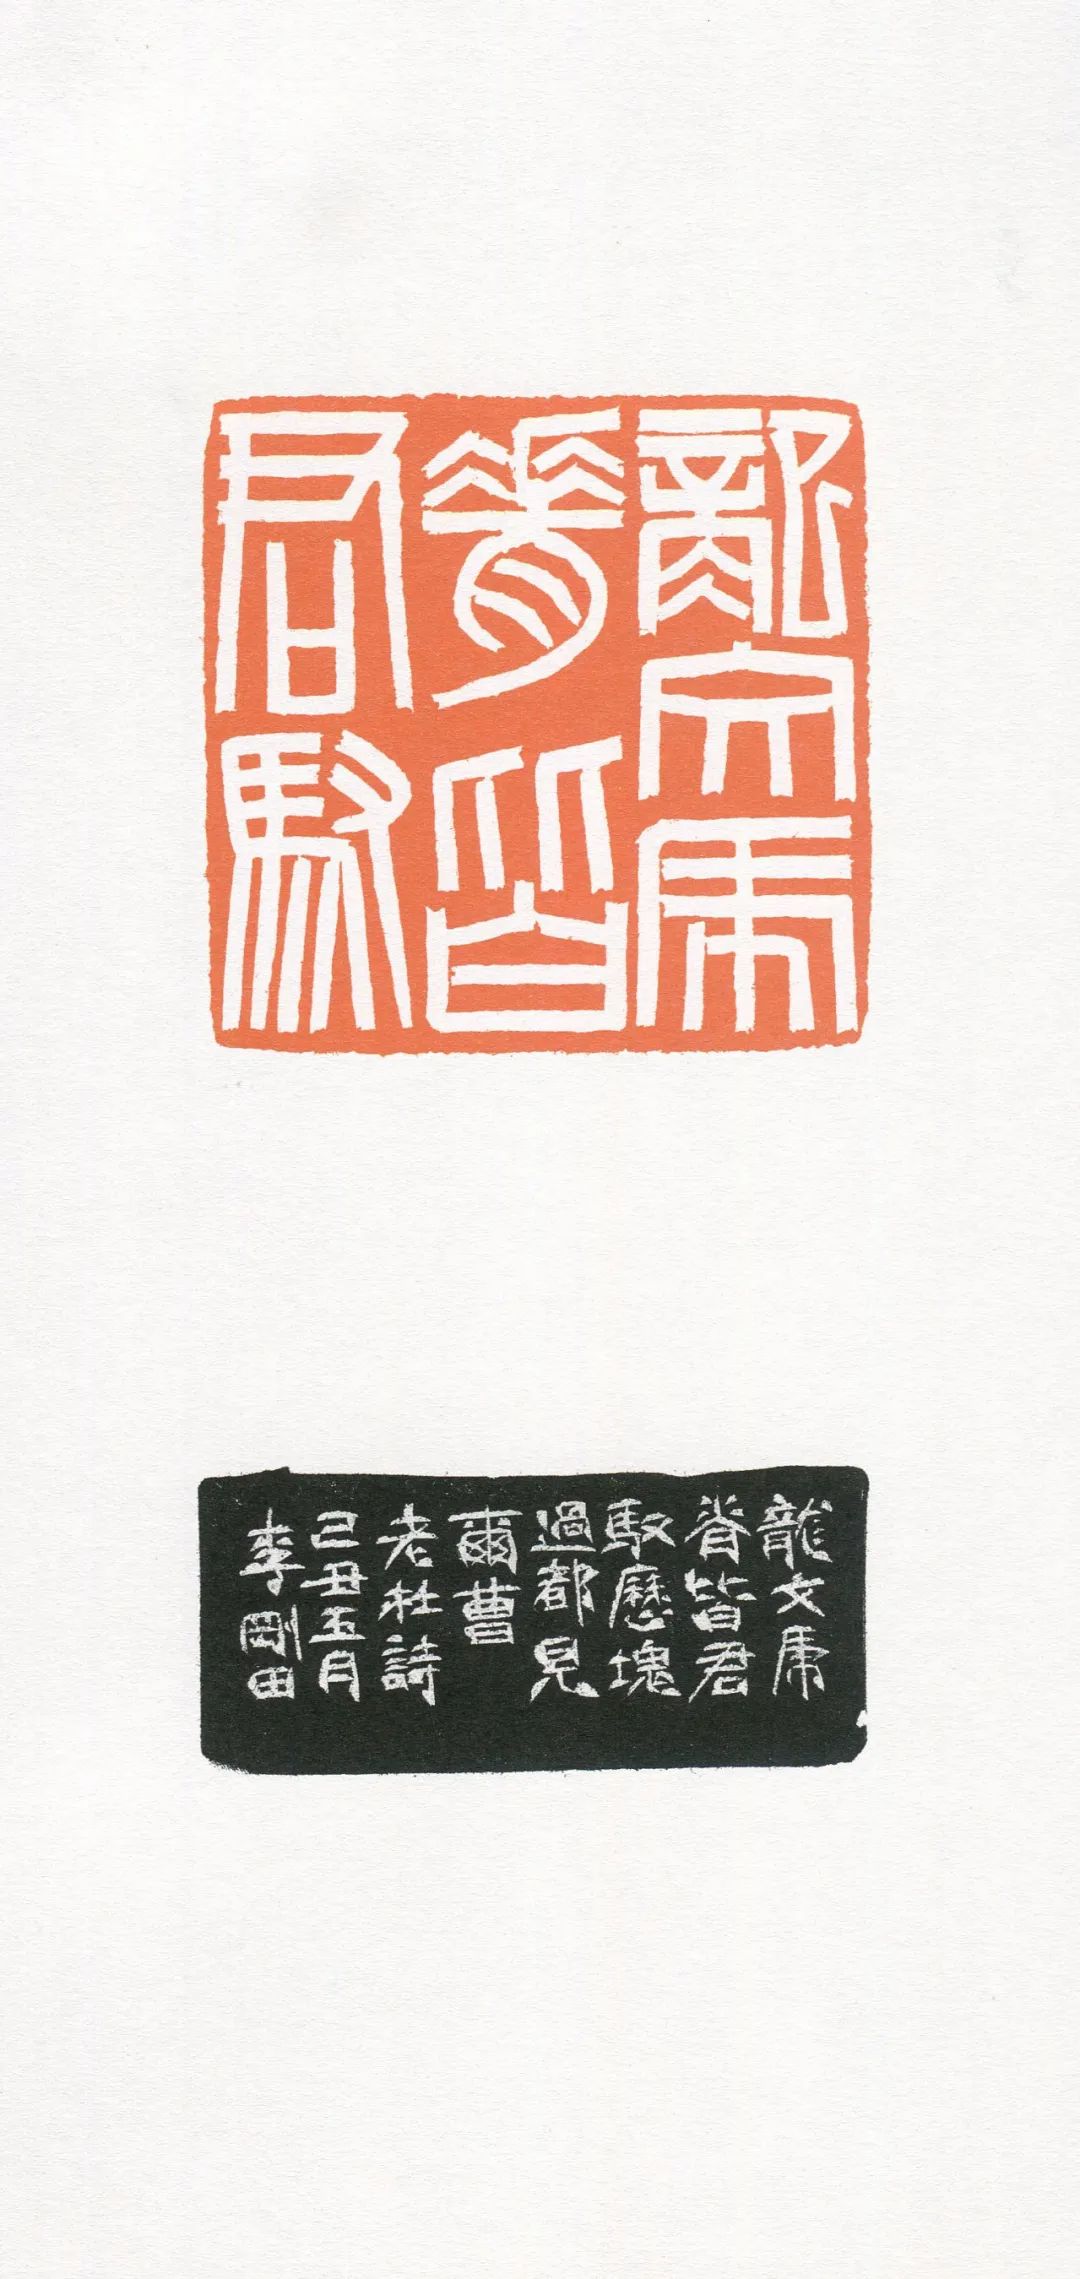 龍文虎
脊皆
君馭
龍文虎
脊皆君
馭歷塊
過都見
爾曹
老杜詩
己丑五月
李剛田